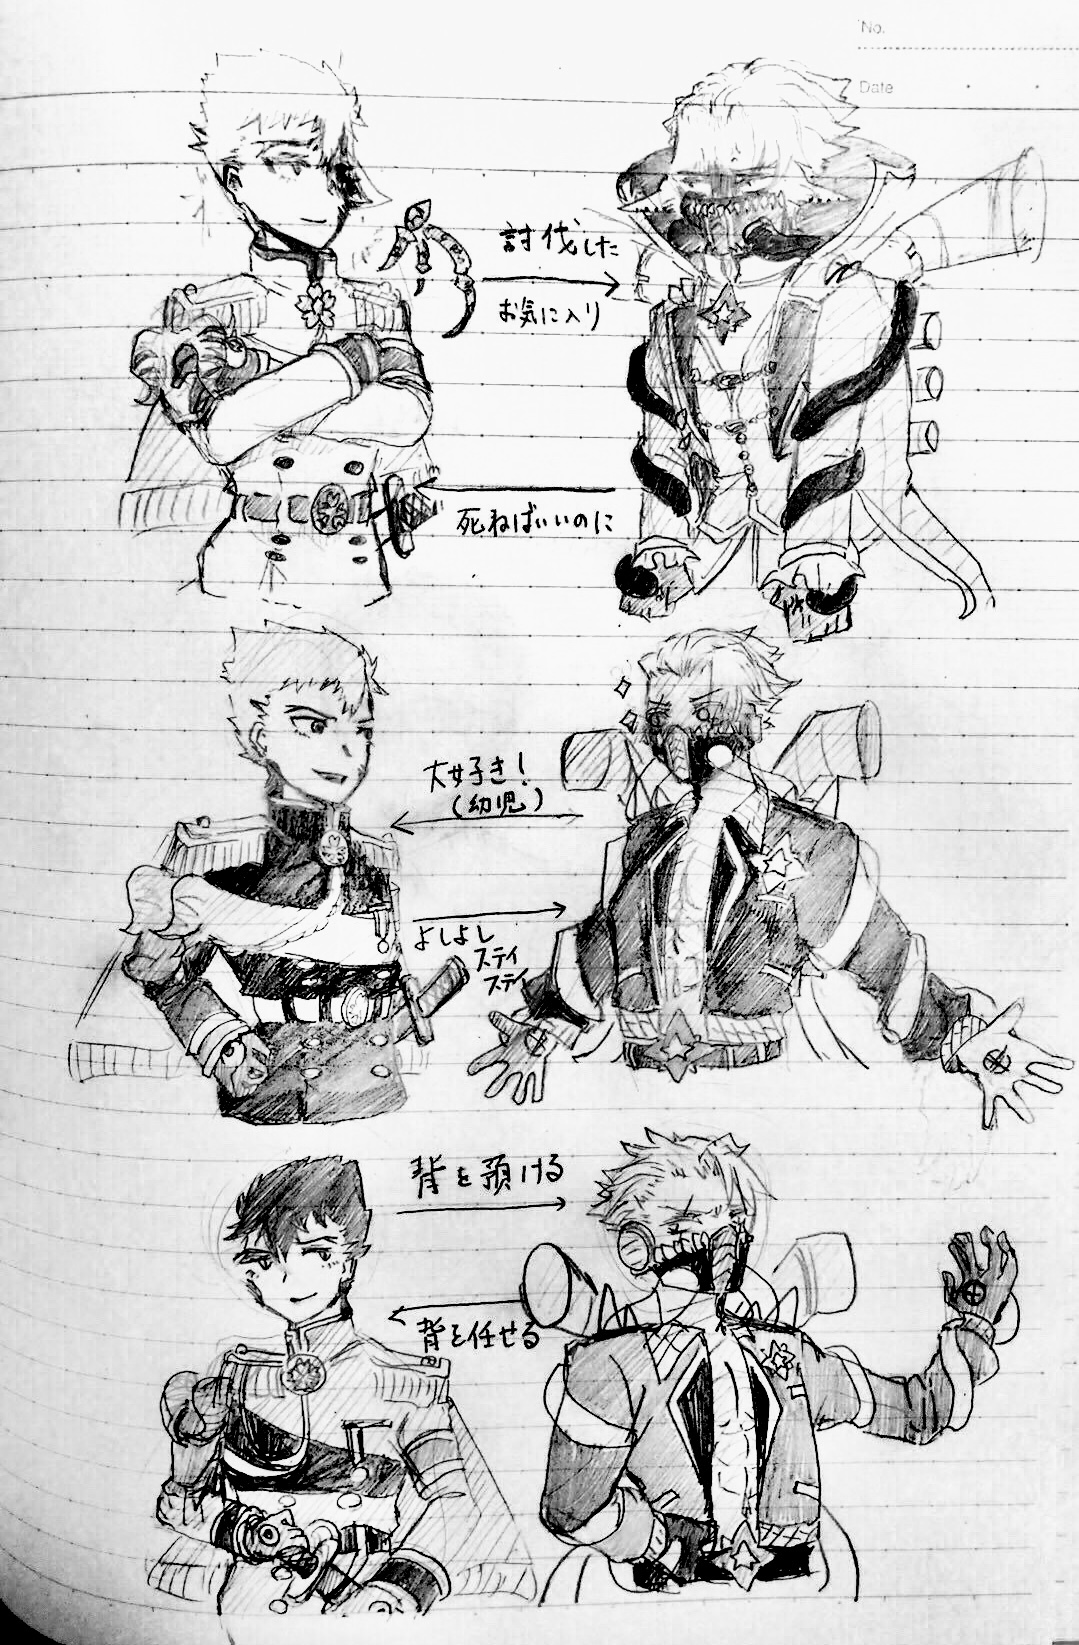 No.
Date
討伐した
お気に入り
死ねばいいのに
大好き!
(幼児)
よしよし
ステイ
ステイ
背を預ける
背を任せる